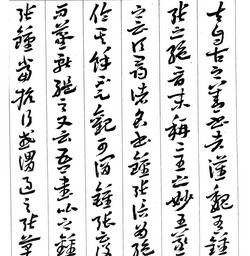 夫自古之善書者漢魏有鍾
張之絕晉末稱二王之妙王羲
之云頃尋諸名書鍾張信為絕
倫其餘不足觀可謂鍾張云沒
而羲獻繼之又云吾書比之鍾
張鍾當抗行或謂過之張草